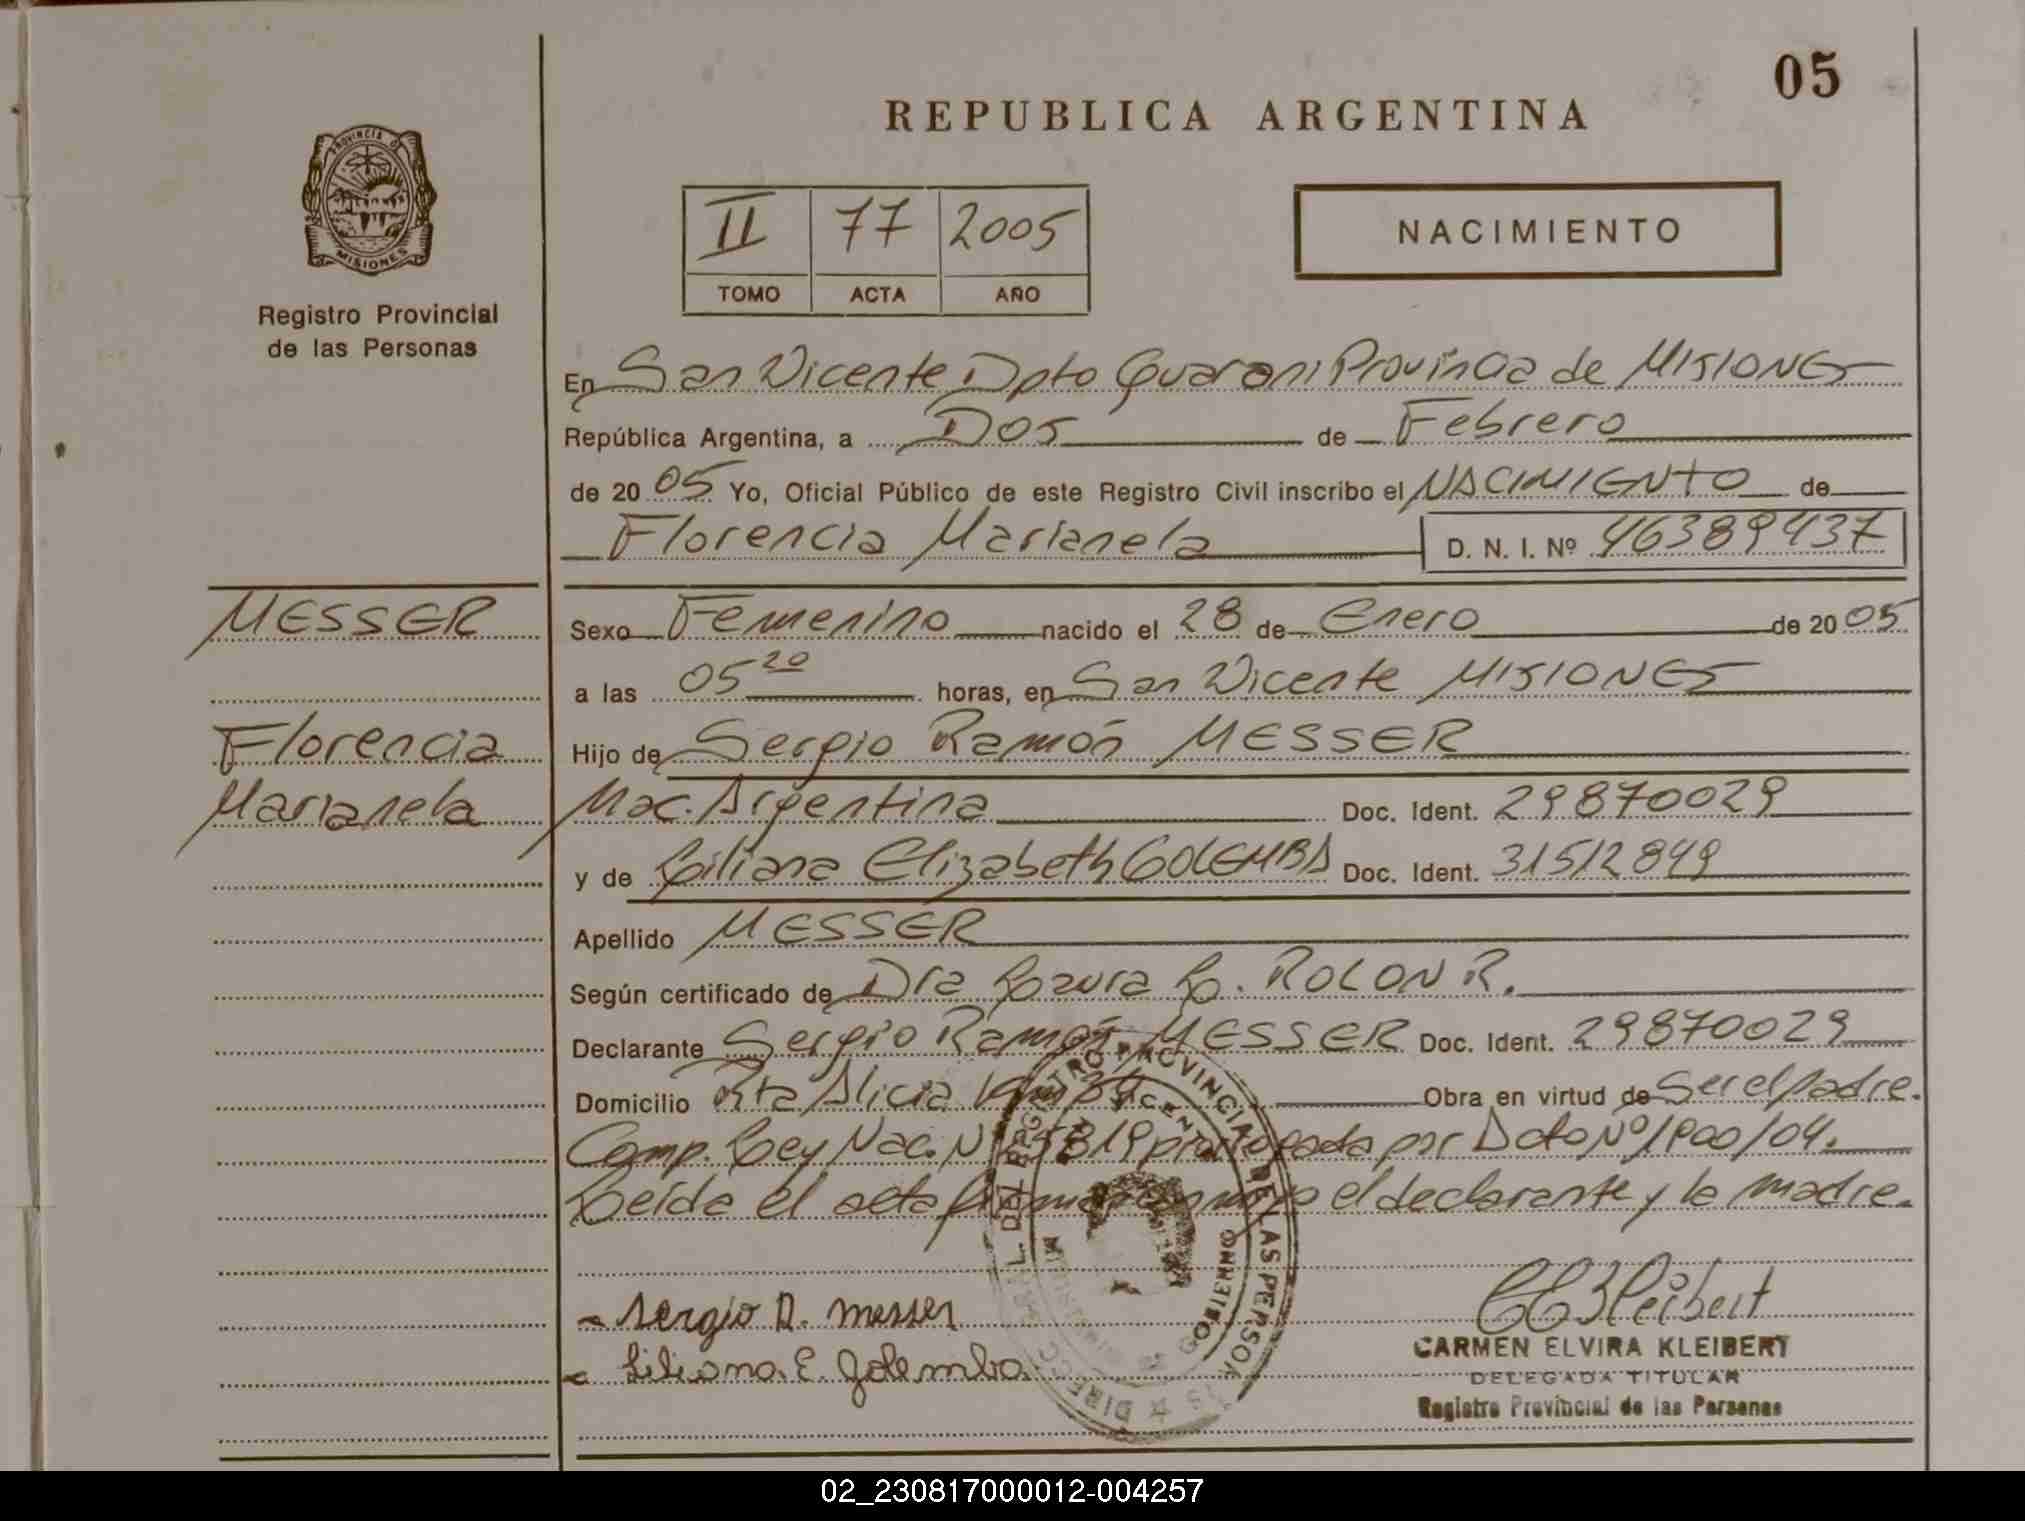 05
REPUBLICA ARGENTINA
PROVINCIA D
MISIONES
Registro Provincial
de las Personas
II 77 2005
TOMO ACTA AÑO
NACIMIENTO
En San Vicente Dpto Guarani Provincia de MISIONES
República Argentina, a Dos de Febrero
de 20 05 Yo, Oficial Público de este Registro Civil inscribo el NACIMIENTO de
Florencia Marianela D. N. I. Nº 46389437
MESSER
Florencia
Marianela
Sexo Femenino nacido el 28 de Enero de 20 05
a las 05 20 horas, en San Vicente MISIONES
Hijo de Sergio Ramón MESSER
Nac. Argentina Doc. Ident. 29870029
y de Liliana Elizabeth GOLEMBA Doc. Ident. 31512849
Apellido MESSER
Según certificado de Dra Laura L. ROLON R.
Declarante Sergio Ramón MESSER Doc. Ident. 29870029
Domicilio Rta Alicia Obra en virtud de Ser el padre.
Comp. Ley Nac. Nº 25819 prorrogada por Dcto Nº 1900/04.
Leída el acta firman conmigo el declarante y la madre.
Sergio R. Messer
Liliana E. Golemba
CARMEN ELVIRA KLEIBERT
DELEGADA TITULAR
Registro Provincial de las Personas
02_230817000012-004257